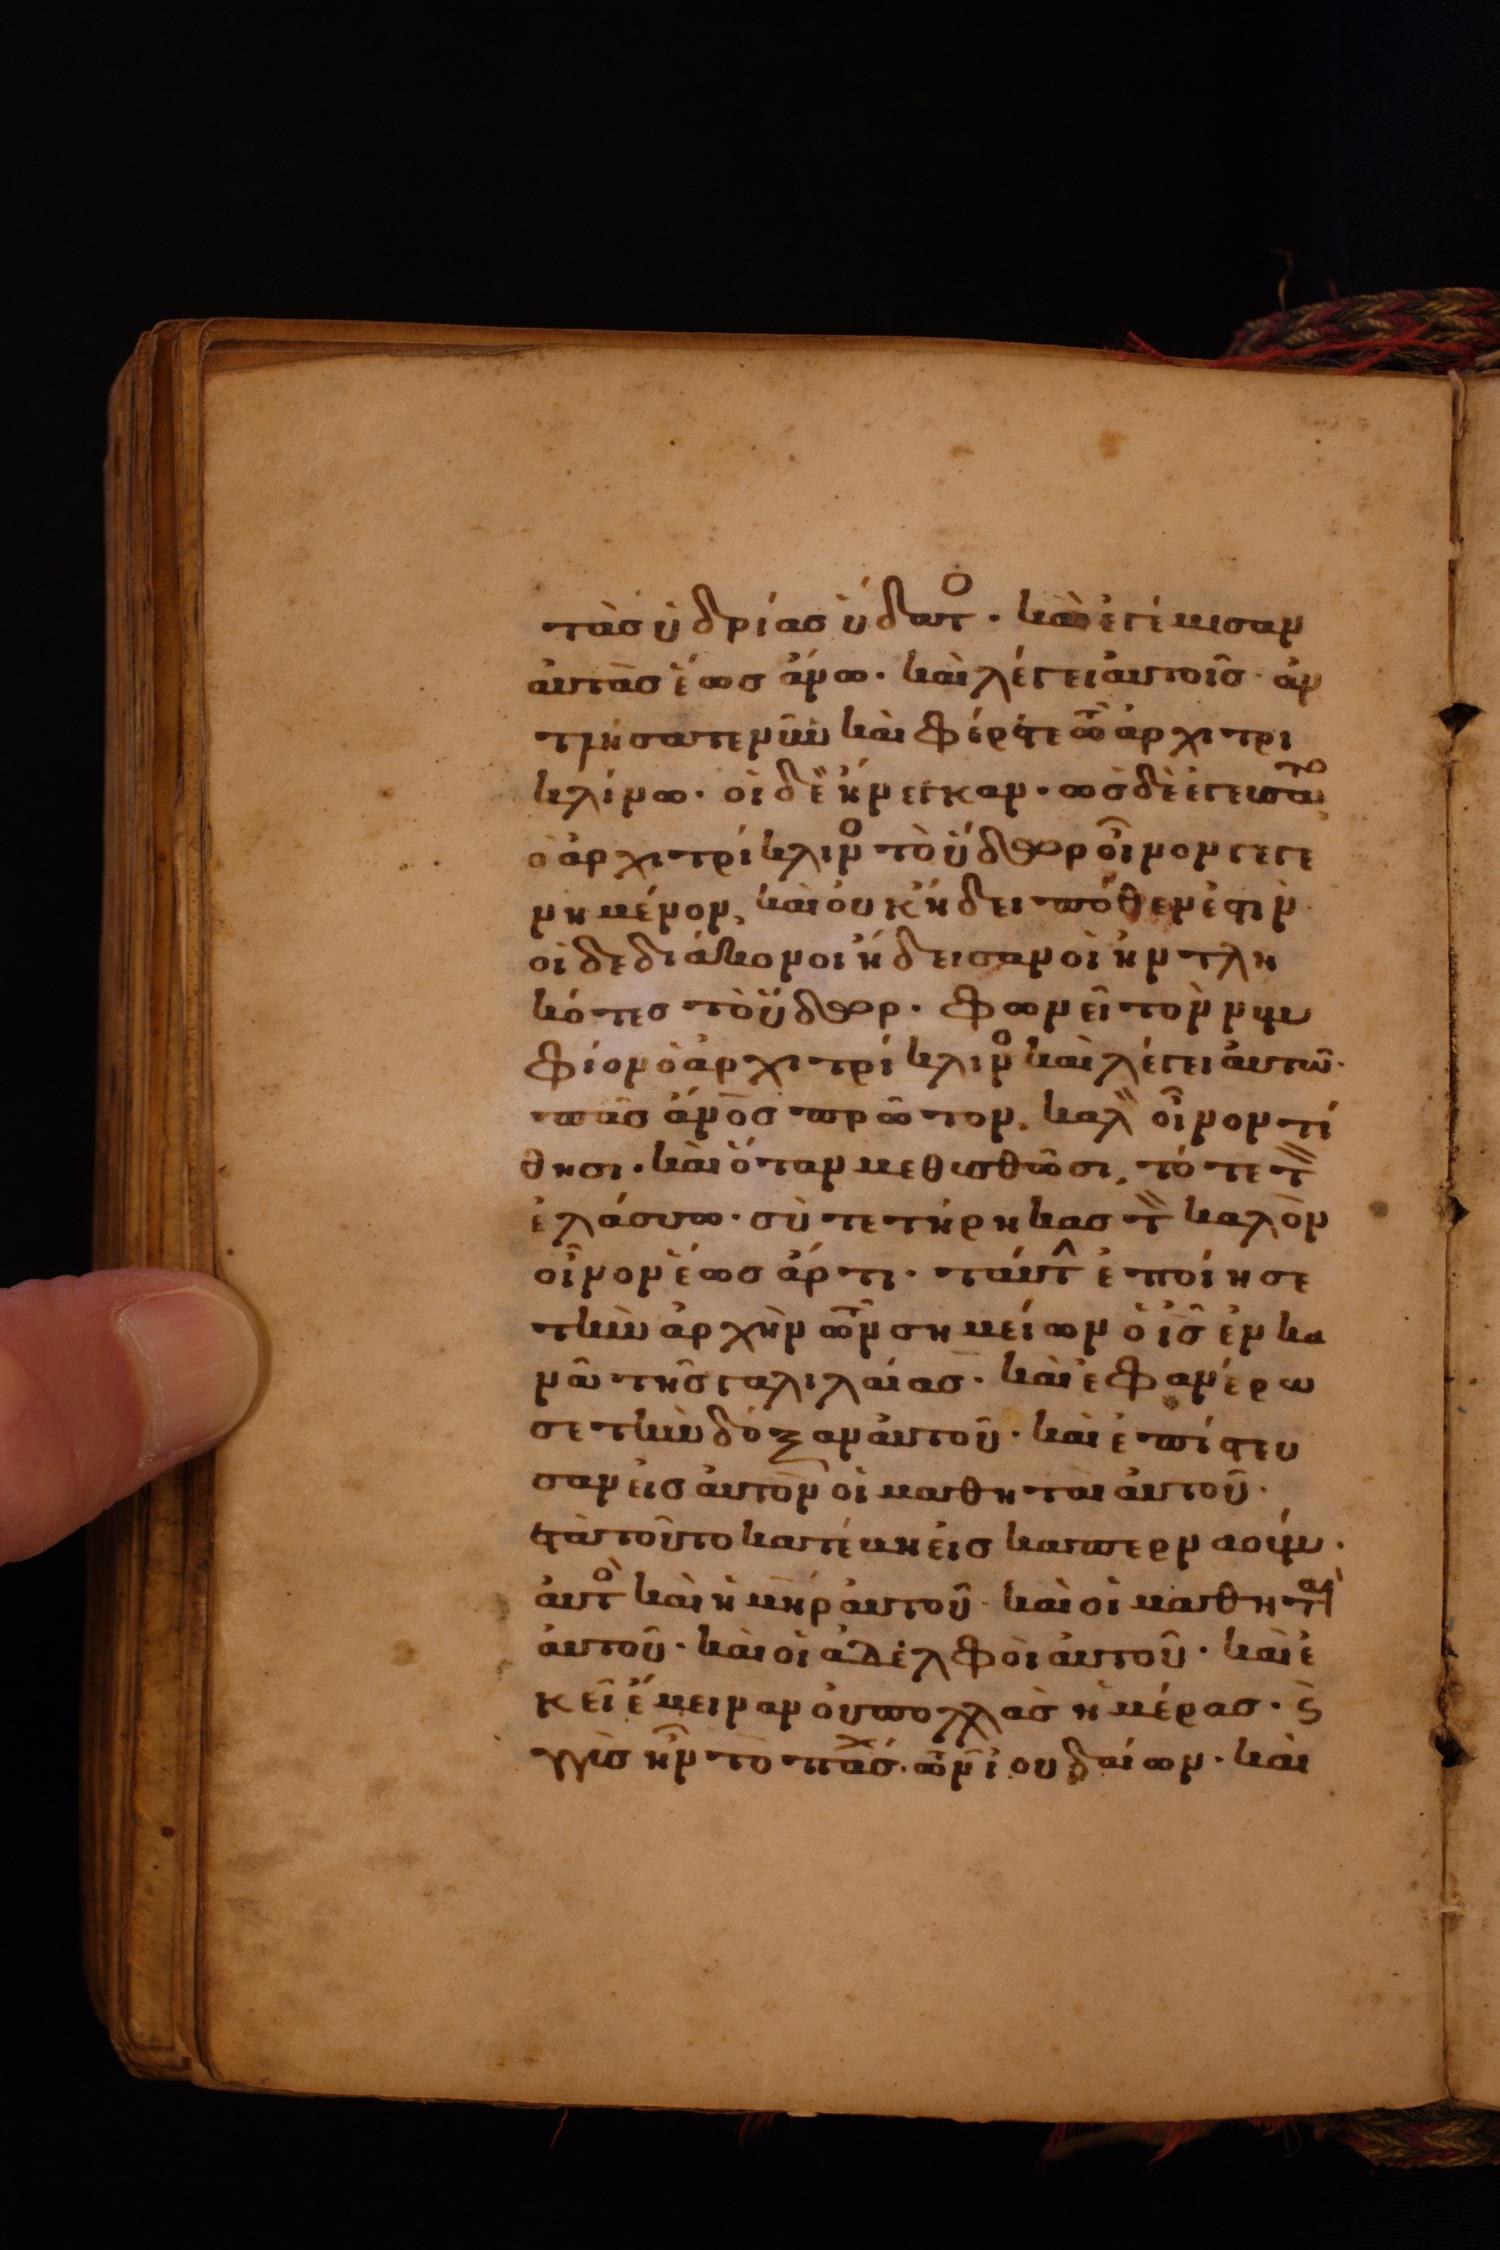 τὰσ ὑδρίασ ὑδατ̊ · καὶ ἐγέμισαν
ἀυτὰσ ἕωσ ἄνω · καὶ λέγει ἀυτοῖσ · ἀν
τλήσατε νῦν καὶ φέρετε τῶ ἀρχιτρι
κλίνω · οἱ δὲ ἤνεγκαν · ὡσ δὲ ἐγεύσατο
ὁ ἀρχιτρίκλιν̊ τὸ ὕδωρ οἶνον γεγε
νημένον, καὶ ὀυκ ἤδει πόθεν ἐστὶν
οἱ δε διάκονοι ἤδεισαν οἱ ἠντλη
κότεσ τὸ ὕδωρ · φωνεῖ τὸν νυμ
φίον ὁ ἀρχιτρίκλιν̊ καὶ λέγει ἀυτῶ ·
πᾶσ ἄνοσ πρῶτον, καλ̀̀ οἶνον τί
θησι · καὶ ὅταν μεθυσθῶσι, τότε τ̀̀
ἐλάσσω · σὺ τετήρηκασ τ̀̀ καλὸν
οἶνον ἕωσ ἄρτι · ταύτ̂ ἐποίησε
τὴν ἀρχὴν τῶν σημείων ὁ ἰσ ἐν κα
νᾶ τῆσ γαλιλαίασ · καὶ ἐφανέρω
σε τὴν δόξαν ἀυτοῦ · καὶ ἐπίστευ
σαν ἐισ ἀυτὸν οἱ μαθηταὶ ἀυτοῦ ·
μετὰ τοῦτο κατέβη ἐισ καπερναούμ ·
ἀυτ̊ καὶ ἡ μηρ ἀυτοῦ · καὶ οἱ μαθηταὶ
ἀυτοῦ · καὶ οἱ ἀδελφοὶ ἀυτοῦ · καὶ ἐ
κεῖ ἔμειναν ὀυ πολλὰσ ἡμέρασ · ἐ
γγὺσ ἦν τὸ πάσχ · τῶν ἰουδαίων · καὶ